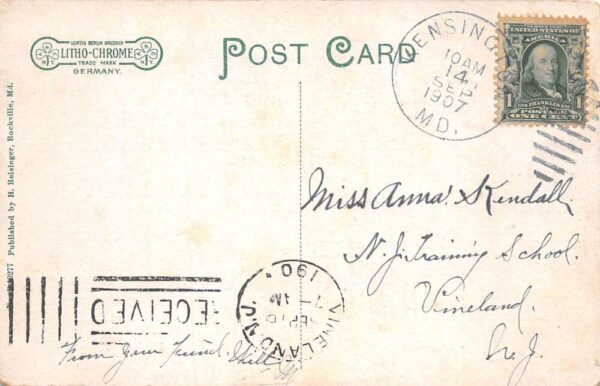 LEIPZIG BERLIN DRESDEN
LITHO-CHROME
TRADE MARK
GERMANY.
POST CARD
KENSING
10AM
14
SEP
1907
MD.
UNITED STATES OF
AMERICA
1 FRANKLIN 1
POSTAGE
ONE CENT
Published by H. Reisinger, Rockville, Md.
Miss Anna Kendall,
N. J. Training School.
Vineland.
N. J.
RECEIVED
VINELAND N.J.
SEP
AM
190
From your friend.